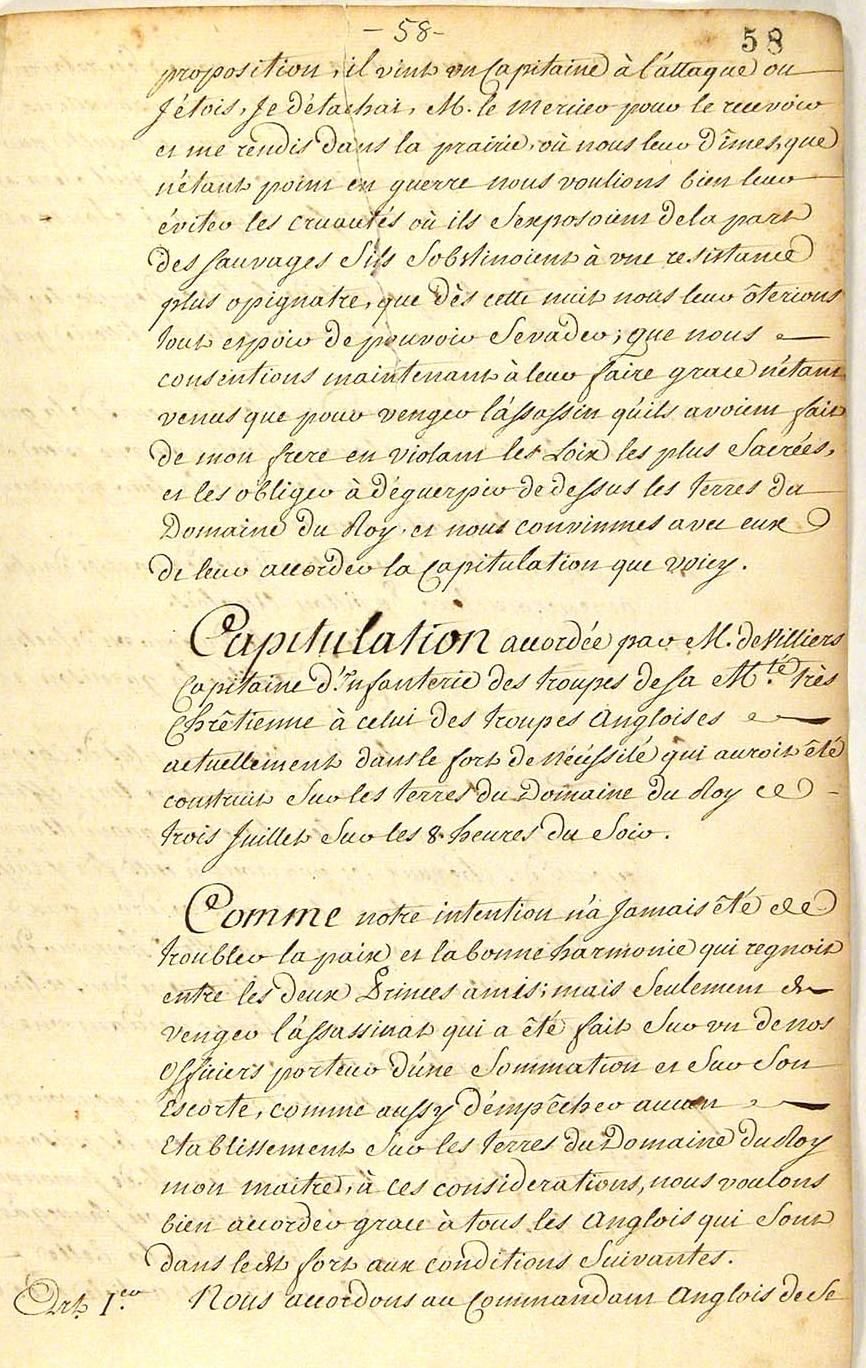 - 58 -
58
proposition, il vint un Capitaine à l'attaque ou
J'étois, Je détachai, M. le Mercier pour le recevoir
et me rendis dans la prairie, où nous leur dîmes, que
n'étant point en guerre nous voulions bien leur
éviter les cruautés où ils S'exposoient de la part
des Sauvages S'ils S'obstinoient à une resistance
plus opignatre, que dès cette nuit nous leur ôterions
tout espoir de pouvoir S'evader; que nous
consentions maintenant à leur faire grace n'étant
venus que pour venger l'assassin qu'ils avoient fait
de mon frere en violant les Loix les plus Sacrées,
et les obliger à déguerpir de dessus les terres du
Domaine du Roy, et nous convinmes avec eux
de leur accorder la Capitulation que voicy.
Capitulation accordée par M. de Villiers
Capitaine d'Infanterie des troupes de Sa M.té très
Chrêtienne à celui des troupes Angloises
actuellement dans le fort de Nécéssité qui auroit été
construit Sur les terres du Domaine du Roy ce
trois Juillet Sur les 8 heures du Soir.
Comme notre intention n'a Jamais été de
troubler la paix et la bonne harmonie qui regnoit
entre les deux Princes amis; mais Seulement de
venger l'assassinat qui a été fait Sur un de nos
Officiers porteur d'une Sommation et Sur Son
Escorte, comme aussy d'empêcher aucun
Etablissement Sur les terres du Domaine du Roy
mon maitre, à ces considerations, nous voulons
bien accorder grace à tous les Anglois qui Sont
dans ledt fort aux conditions Suivantes.
Art. I.er Nous accordons au Commandant Anglois de Se